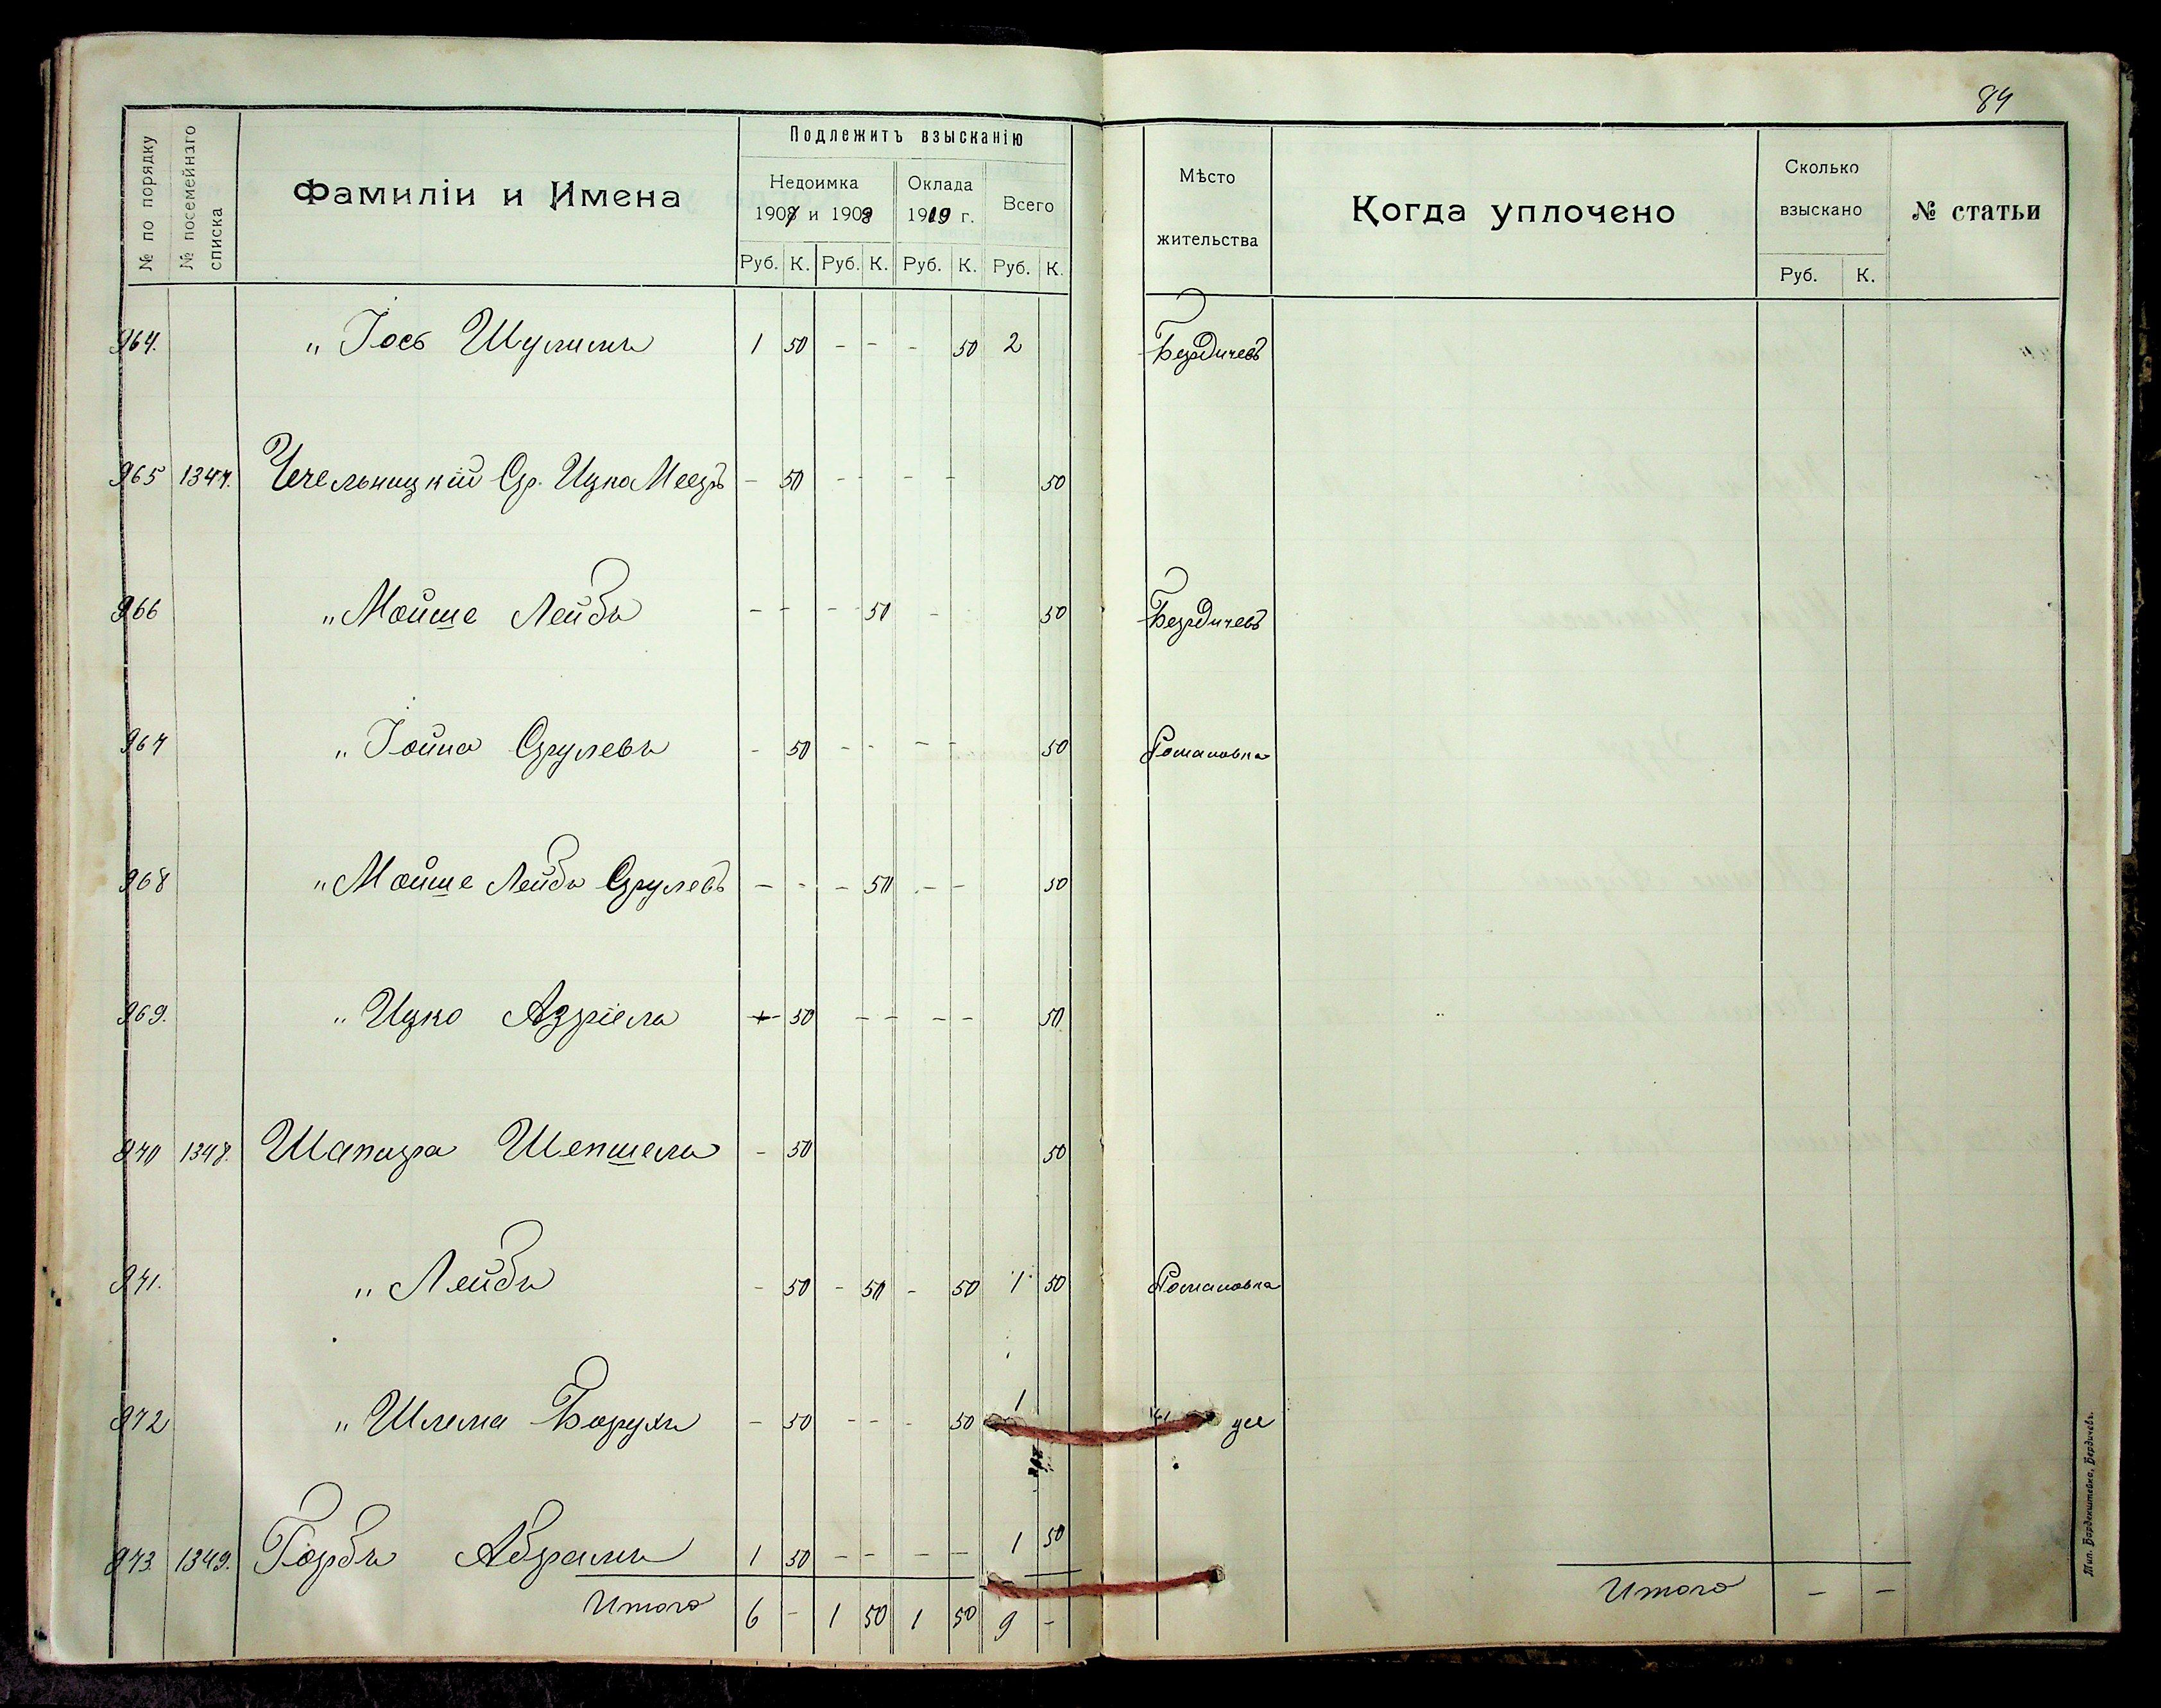 84
№ по порядку № посемейнаго списка Фамиліи и Имена Подлежитъ взысканію Мѣсто жительства Когда уплочено Сколько взыскано № статьи
Недоимка 1907 и 1908 Оклада 1909 г. Всего
Руб. К. Руб. К. Руб. К. Руб. К. Руб. К.
964. „ Іось Шулимъ 1 50 - - - 50 2 Бердичевъ
965 1347. Чечельницкій Ср. Ицко Мееръ - 50 - - - - 50
966 „ Мойше Лейбъ - - - 50 - 50 Бердичевъ
967 „ Іойна Срулевъ - 50 - - - - 50 Романовка
968 „ Мойше Лейбъ Срулевъ - - - 50 - - 50
969. „ Ицко Азріель - 50 - - - - 50
970 1348. Шапира Шепшель - 50 50
971. „ Лейбъ - 50 - 50 - 50 1 50 Романовка
972 „ Шлема Борухъ - 50 - - - 50 1
973. 1349. Горбъ Абрамъ 1 50 - - - - 1 50
Итого 6 - 1 50 1 50 9 - Итого - -
Тип. Барденштейна, Бердичевъ.